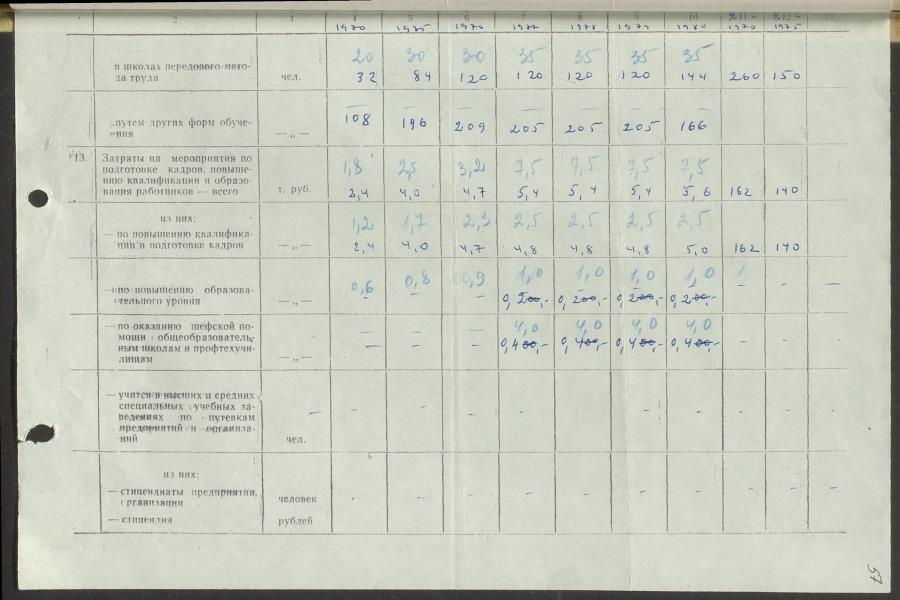 2 3 4 5 6 7 8 9 10
1970 1975 1976 1977 1978 1979 1980 1970 1975
20 30 30 35 35 35 35
в школах передового мето-
да труда чел. 32 84 120 120 120 120 144 260 150
путем других форм обуче-
ния —„— 108 196 209 205 205 205 166
13. Затраты на мероприятия по
подготовке кадров, повыше- 1,8 2,5 3,2 7,5 7,5 7,5 7,5
нию квалификации и образо-
вания работников — всего т. руб. 2,4 4,0 4,7 5,4 5,4 5,4 5,6 162 140
из них: 1,2 1,7 2,3 2,5 2,5 2,5 2,5
— по повышению квалифика-
ции и подготовке кадров —„— 2,4 4,0 4,7 4,8 4,8 4,8 5,0 162 140
0,6 0,8 0,9 1,0 1,0 1,0 1,0
— по повышению образова-
тельного уровня —„— – – – 0,200,- 0,200,- 0,200,- 0,200,- – – –
— — — 4,0 4,0 4,0 4,0
— по оказанию шефской по-
мощи общеобразователь- – – – 0,400,- 0,400,- 0,400,- 0,400,- – –
ным школам и профтехучи-
лищам —„—
— учится в высших и средних
специальных учебных за-
ведениях по путевкам
предприятий и организа-
ций чел.
из них:
— стипендиаты предприятия,
организации человек
— стипендия рублей
57